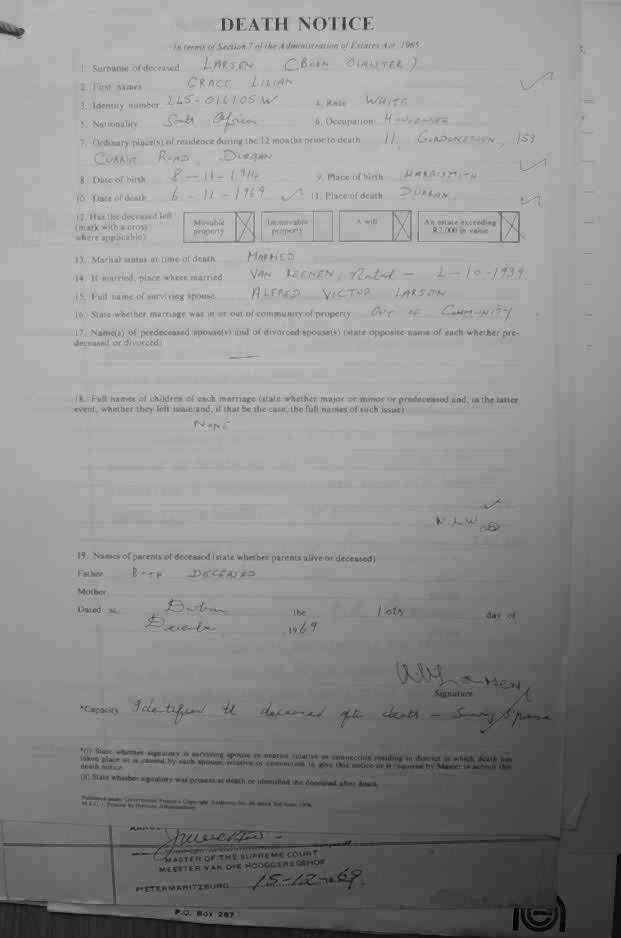 DEATH NOTICE
In terms of Section 7 of the Administration of Estates Act, 1965
1. Surname of deceased LARSEN (BORN OLANTER)
2. First names GRACE LILIAN
3. Identity number 245-016105 W 4. Race WHITE
5. Nationality South African 6. Occupation HOUSEWIFE
7. Ordinary place(s) of residence during the 12 months prior to death 11, GORDONSTOWN, 153
CURRIE ROAD, DURBAN
8. Date of birth 8-11-1914 9. Place of birth HARRISMITH
10. Date of death 6-12-1969 11. Place of death DURBAN
12. Has the deceased left (mark with a cross where applicable) Movable property Immovable property A will An estate exceeding R2,000 in value
13. Marital status at time of death MARRIED
14. If married, place where married VAN REENEN, Natal - 2-10-1939
15. Full name of surviving spouse ALFRED VICTOR LARSEN
16. State whether marriage was in or out of community of property OUT OF COMMUNITY
17. Name(s) of predeceased spouse(s) and of divorced spouse(s) (state opposite name of each whether pre-
deceased or divorced)
18. Full names of children of each marriage (state whether major or minor or predeceased and, in the latter
event, whether they left issue and, if that be the case, the full names of such issue)
NONE
19. Names of parents of deceased (state whether parents alive or deceased)
Father BOTH DECEASED
Mother
Dated at Durban the 10th day of
December 1969
Signature
*Capacity Identified the deceased after death - Surviving Spouse
*(i) State whether signatory is surviving spouse or nearest relative or connection residing in district in which death has
taken place or is caused by such spouse, relative or connection to give this notice or is required by Master to submit this
death notice.
(ii) State whether signatory was present at death or identified the deceased after death.
MASTER OF THE SUPREME COURT
MEESTER VAN DIE HOOGGEREGSHOF
PIETERMARITZBURG 15-12-1969.
P.O. Box 287